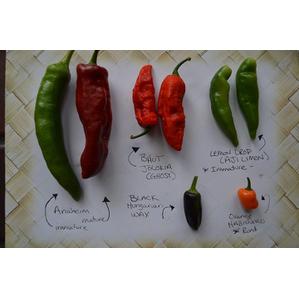 BHUT
JOLOKIA
(GHOST)
LEMON DROP
(AJI LIMON)
* Immature *
Anaheim
mature
immature
BLACK
Hungarian
WAX
Orange
HABANERO